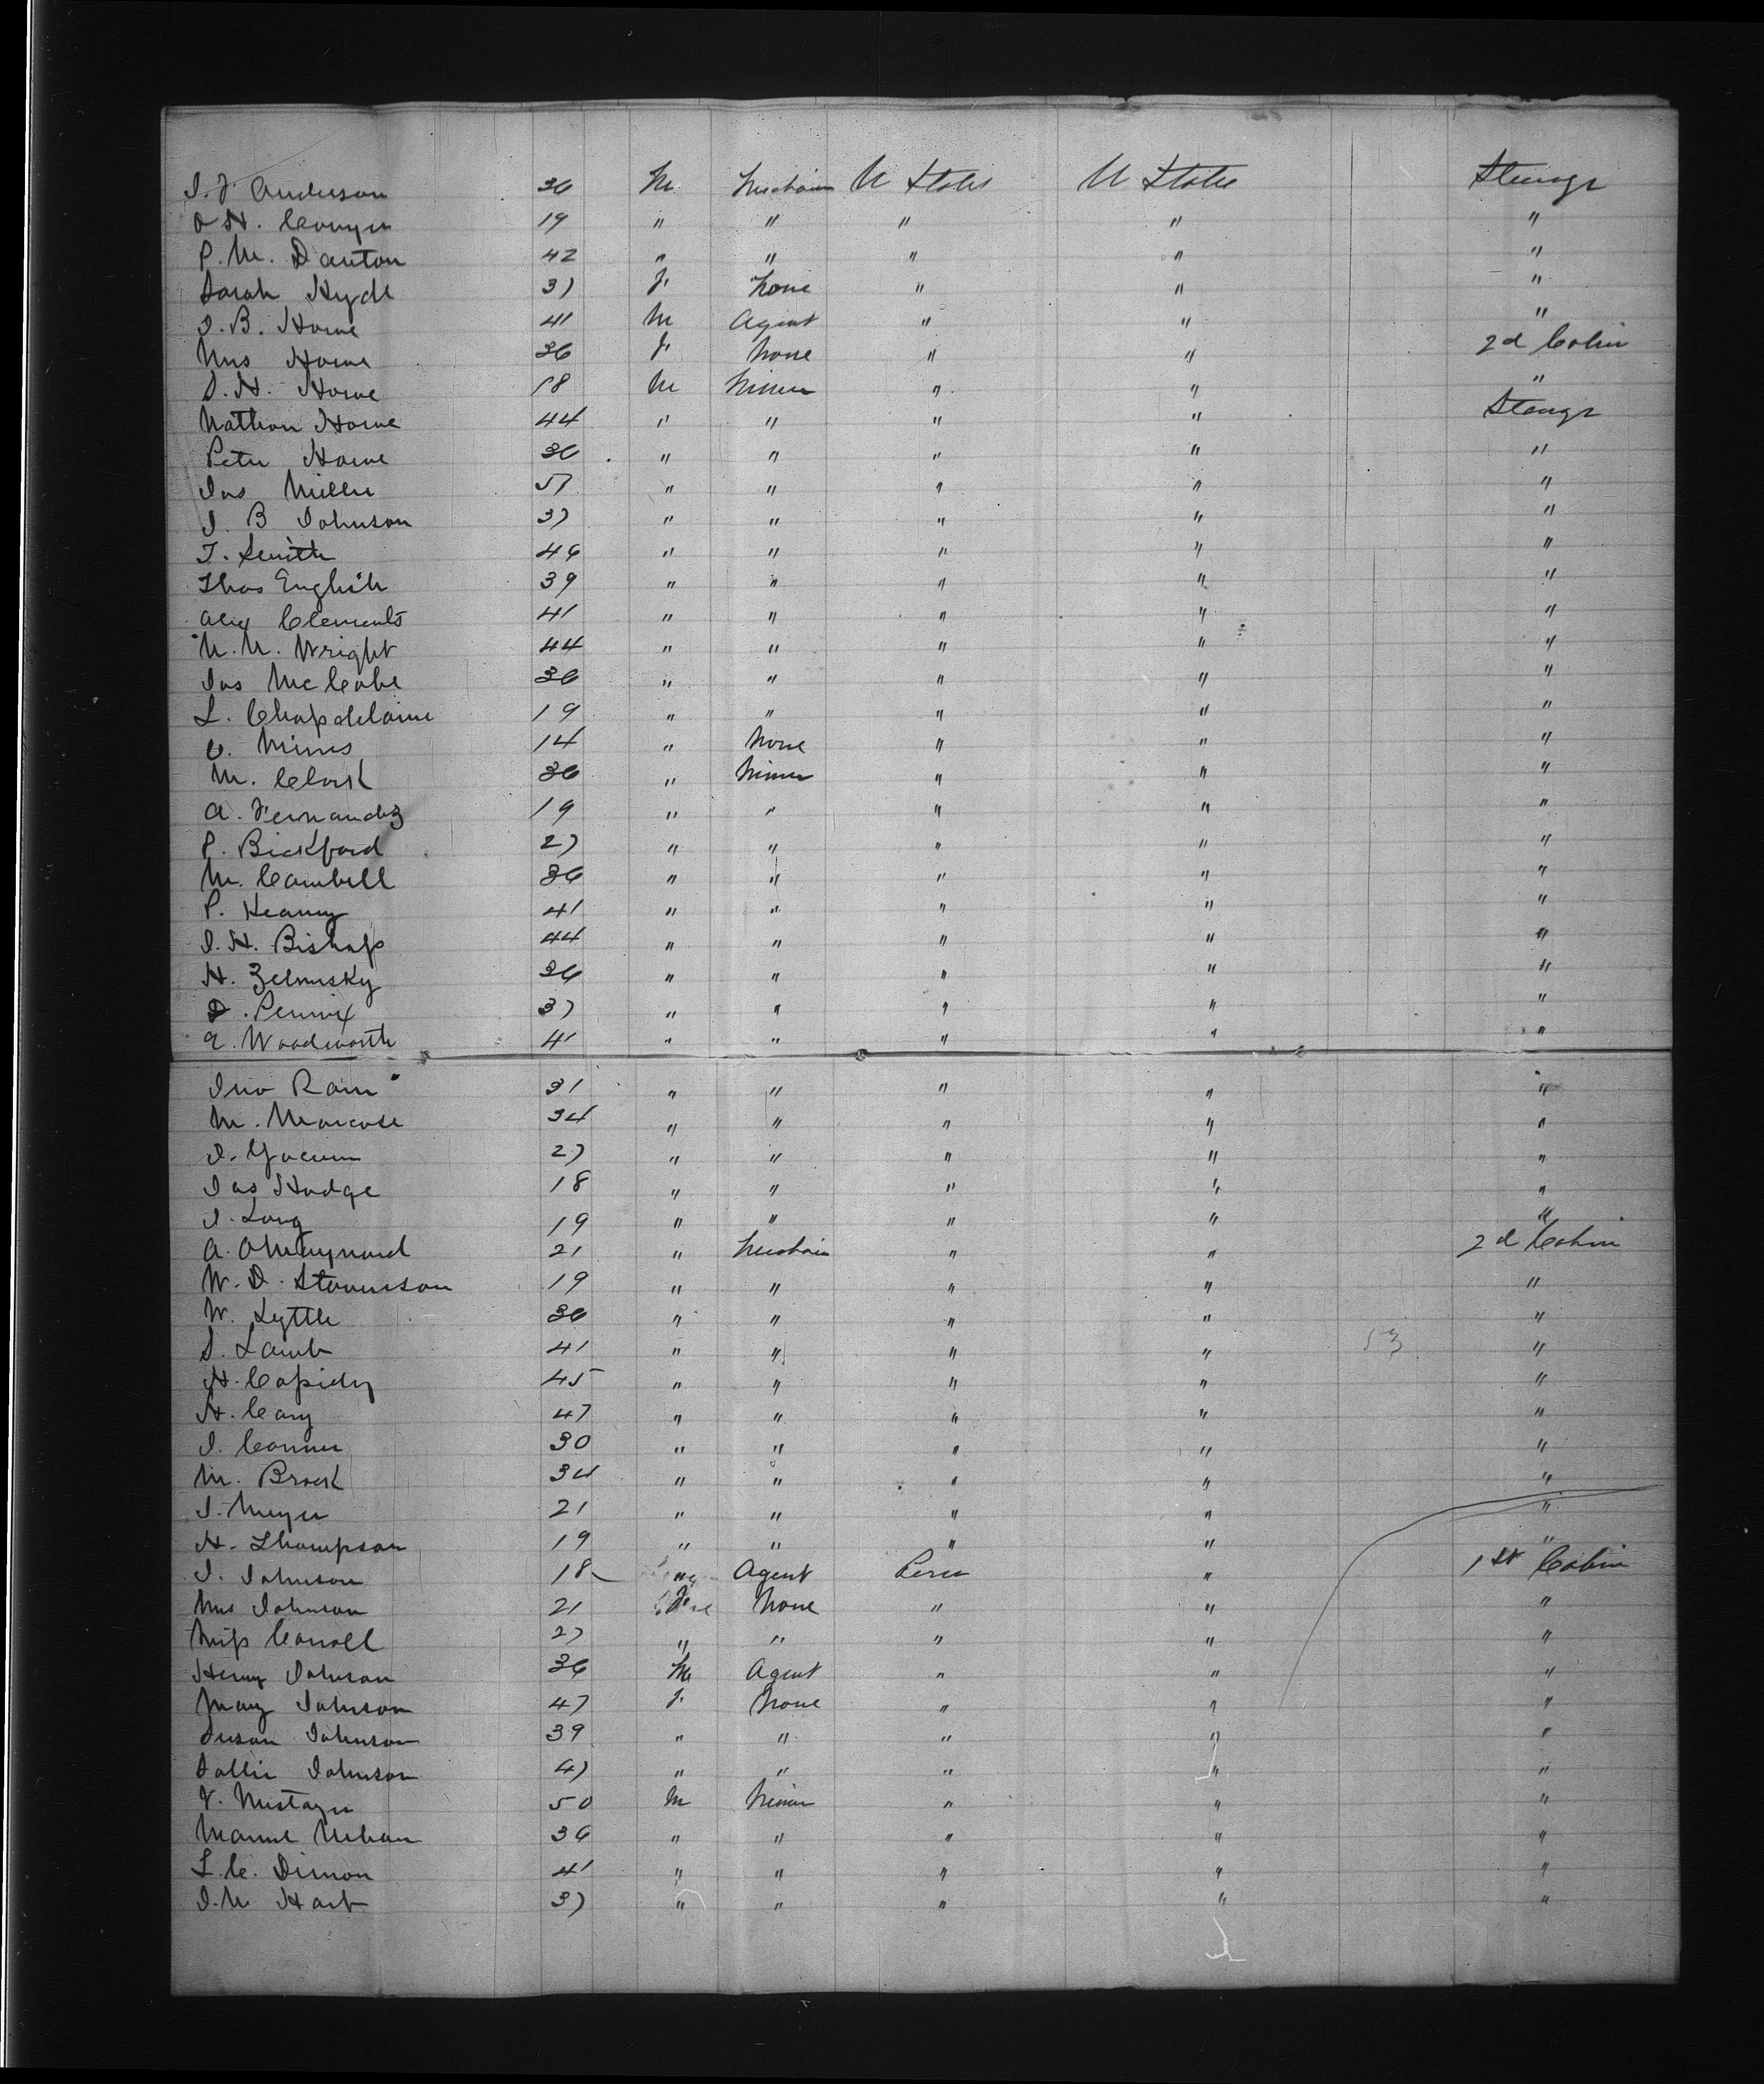 J. F. Anderson 36 M. Mechanic U States U States Steerage
O H. Conyer 19 " " " " "
P. M. Danton 42 " " " " "
Sarah Hyde 37 F. None " " "
J. B. Howe 41 M Agent " " "
Mrs Howe 36 F. None " " 2d Cabin
S. H. Howe 18 M Miner " " "
Nathan Howe 44 " " " " Steerage
Peter Howe 36 " " " " "
Jas Miller 57 " " " " "
J. B Johnson 37 " " " " "
T. Smith 46 " " " " "
Thos English 39 " " " " "
Alex Clements 41 " " " " "
M. M. Wright 44 " " " " "
Jas McCabe 36 " " " " "
L. Chapdelaine 19 " " " " "
O. Mines 14 " None " " "
M. Clark 36 " Miner " " "
A. Fernandez 19 " " " " "
P. Bickford 27 " " " " "
M. Cambell 36 " " " " "
P. Keaney 41 " " " " "
J. H. Bishop 44 " " " " "
H. Zelmsky 36 " " " " "
D. Pennix 37 " " " " "
E. Woodworth 41 " " " " "
Jno Ram 31 " " " " "
M. Marcose 34 " " " " "
J. Yocum 27 " " " " "
Jas Hodge 18 " " " " "
J. Long 19 " " " " "
A. O Maynard 21 " Mechanic " " 2d Cabin
W. D. Stevenson 19 " " " " "
W. Lyttle 36 " " " " "
S. Lamb 41 " " " " 53 "
H. Cassidy 45 " " " " "
H. Cary 47 " " " " "
J. Conner 30 " " " " "
M. Brock 34 " " " " "
J. Meyer 21 " " " " "
H. Thompson 19 " " " " "
J. Johnson 18 " Agent Peru " 1st Cabin
Mrs Johnson 21 F. None " " "
Miss Carroll 27 " " " " "
Henry Johnson 36 M Agent " " "
Mary Johnson 47 F. None " " "
Susan Johnson 39 " " " " "
Sallie Johnson 47 " " " " "
V. 50 M Miner " " "
Manuel 36 " " " " "
L. C. Dimon 41 " " " " "
J. M Hart 37 " " " " "